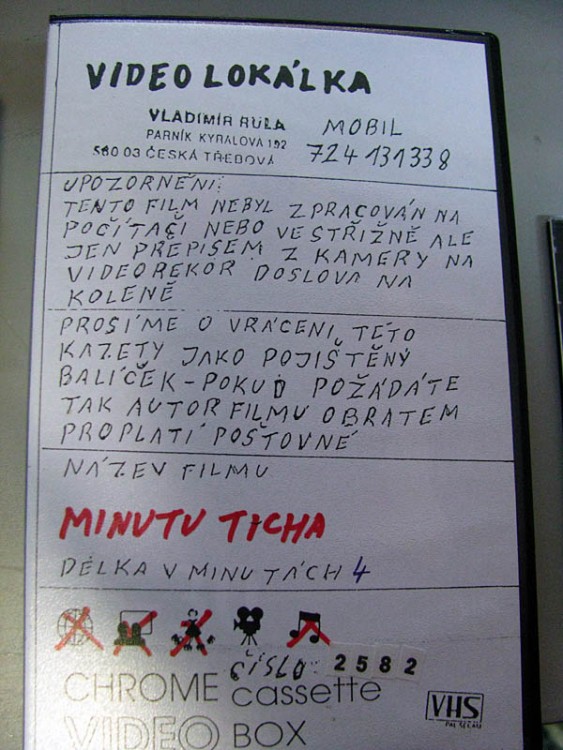 VIDEO LOKÁLKA
VLADIMÍR RŮLA
PARNÍK KYRALOVA 192
560 03 ČESKÁ TŘEBOVÁ
MOBIL
724 131338
UPOZORNĚNI:
TENTO FILM NEBYL ZPRACOVÁN NA
POČÍTAČI NEBO VE STŘIŽNĚ ALE
JEN PŘEPISEM Z KAMERY NA
VIDEOREKOR DOSLOVA NA
KOLENĚ
PROSIME O VRÁCENI, TÉTO
KAZETY JAKO POJIŠTĚNÝ
BALIČEK-POKUD POŽÁDÁTE
TAK AUTOR FILMU OBRATEM
PROPLATÍ POŠTOVNÉ
NÁZEV FILMU
MINUTU TICHA
DÉLKA V MINUTÁCH 4
ČÍSLO 2582
CHROME cassette
VIDEO BOX
VHS